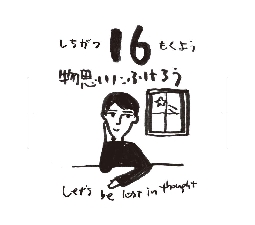 しちがつ 16 もくよう
物思いにふけろう
Let's be lost in thought